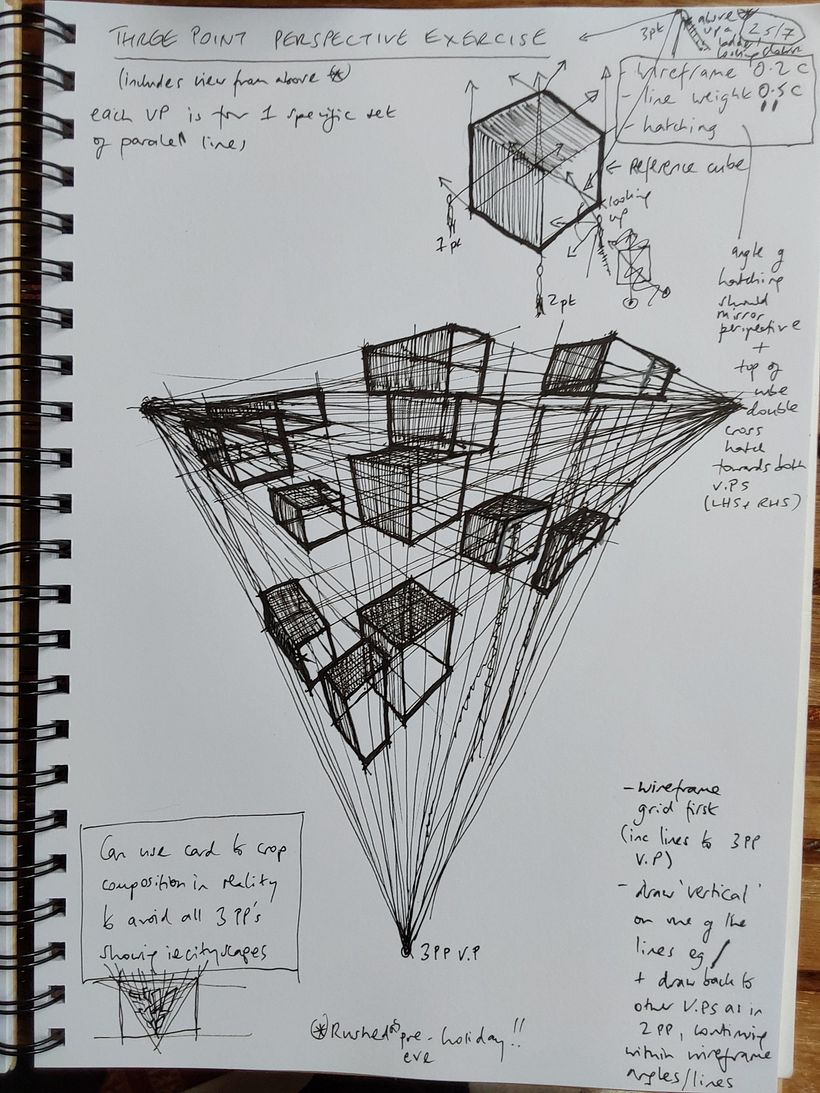 THREE POINT PERSPECTIVE EXERCISE
(includes view from above *)
each VP is for 1 specific set
of parallel lines
3pt
above
up a
ladder
looking down
25/7
- wireframe 0.2 C
- line weight 0.5 C
!!
- hatching
← Reference cube
looking
up
1 pt
2pt
angle of
hatching
should
mirror
perspective
+
top of
cube
double
cross
hatch
towards both
V.PS
(LHS + RHS)
3PP V.P
- wireframe
grid first
(inc lines to 3PP
V.P)
- draw 'vertical'
on one of the
lines eg /
+ draw back to
other V.Ps as in
2PP, continuing
within wireframe
angles/lines
Can use card to crop
composition in reality
to avoid all 3 PP's
showing ie cityscapes
* Rushed pre-holiday!!
eve